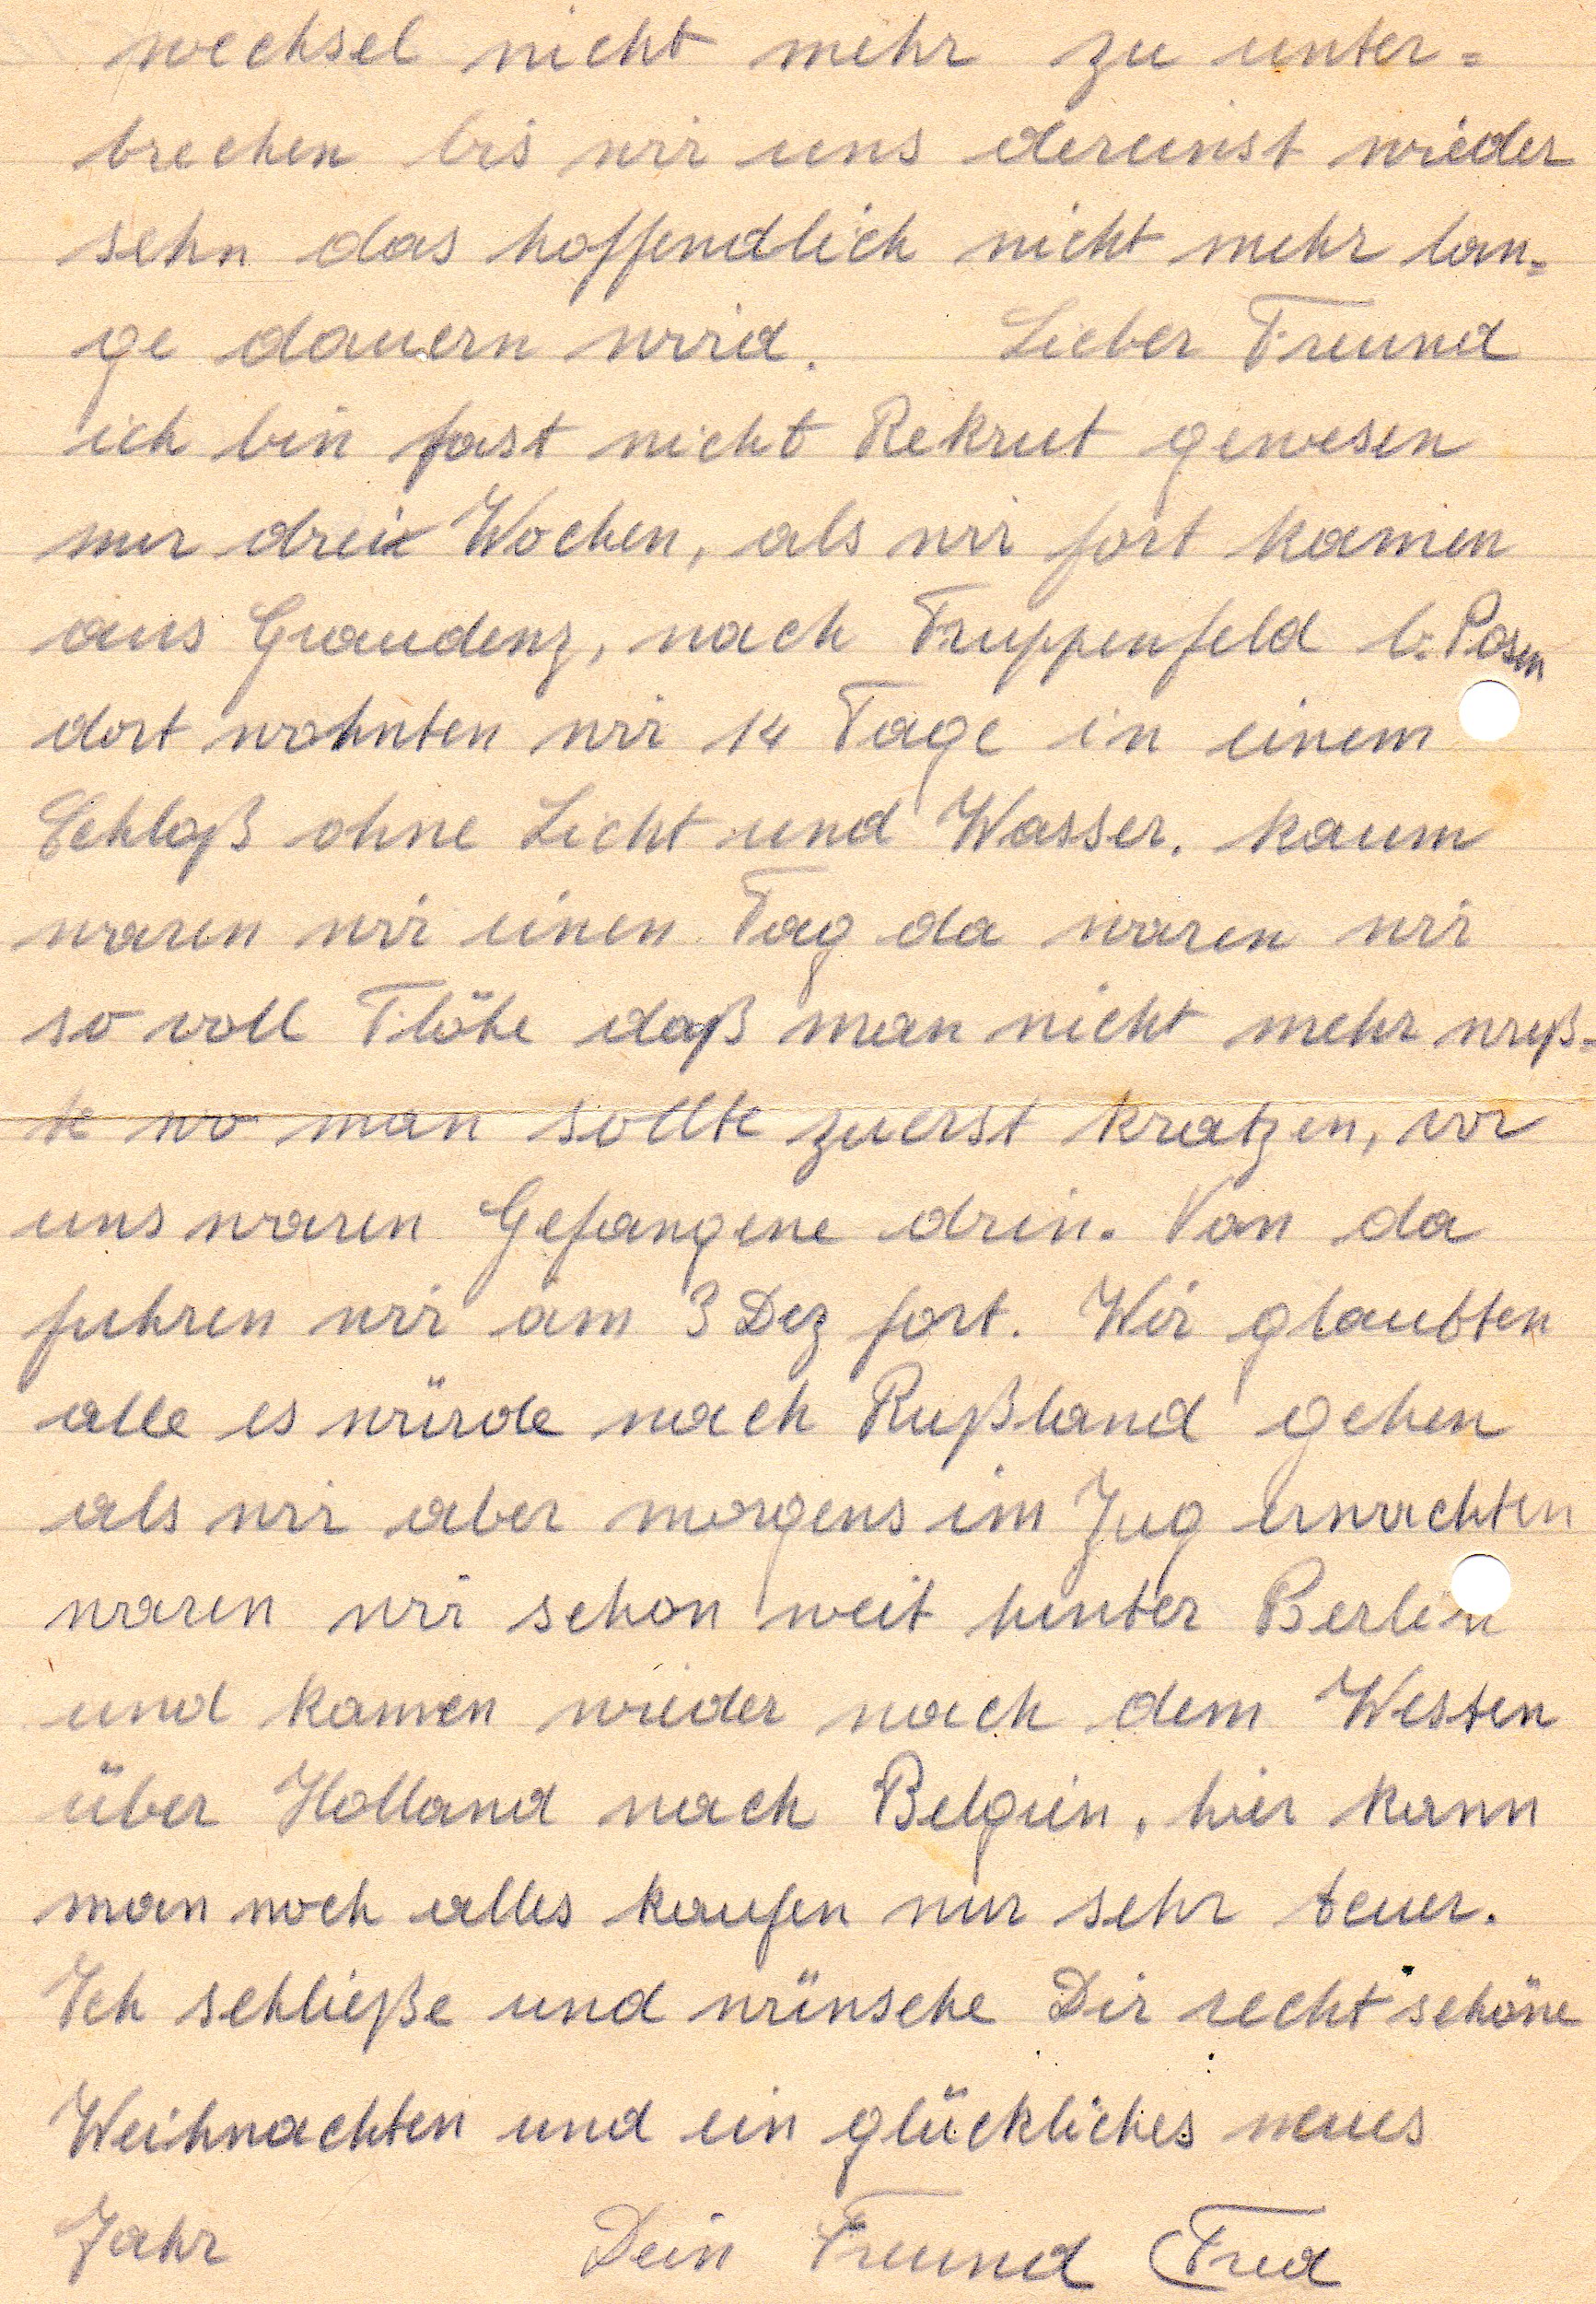 wechsel nicht mehr zu unter=
brechen bis wir uns dereinst wieder
sehn das hoffendlich nicht mehr lan=
ge dauern wird. Lieber Freund
ich bin fast nicht Rekrut gewesen
nur drei Wochen, als wir fort kamen
aus Graudenz, nach Truppenfeld b. Posen
dort wohnten wir 14 Tage in einem
Schloß ohne Licht und Wasser. kaum
waren wir einen Tag da waren wir
so voll Flöhe daß man nicht mehr wuß=
te wo man sollte zuerst kratzen, vor
uns waren Gefangene drin. Von da
fuhren wir am 3 Dez fort. Wir glaubten
alle es würde nach Rußland gehen
als wir aber morgens im Zug erwachten
waren wir schon weit hinter Berlin
und kamen wieder nach dem Westen
über Holland nach Belgien, hier kann
man noch alles kaufen nur sehr teuer.
Ich schließe und wünsche Dir recht schöne
Weihnachten und ein glückliches neues
Jahr Dein Freund Fred